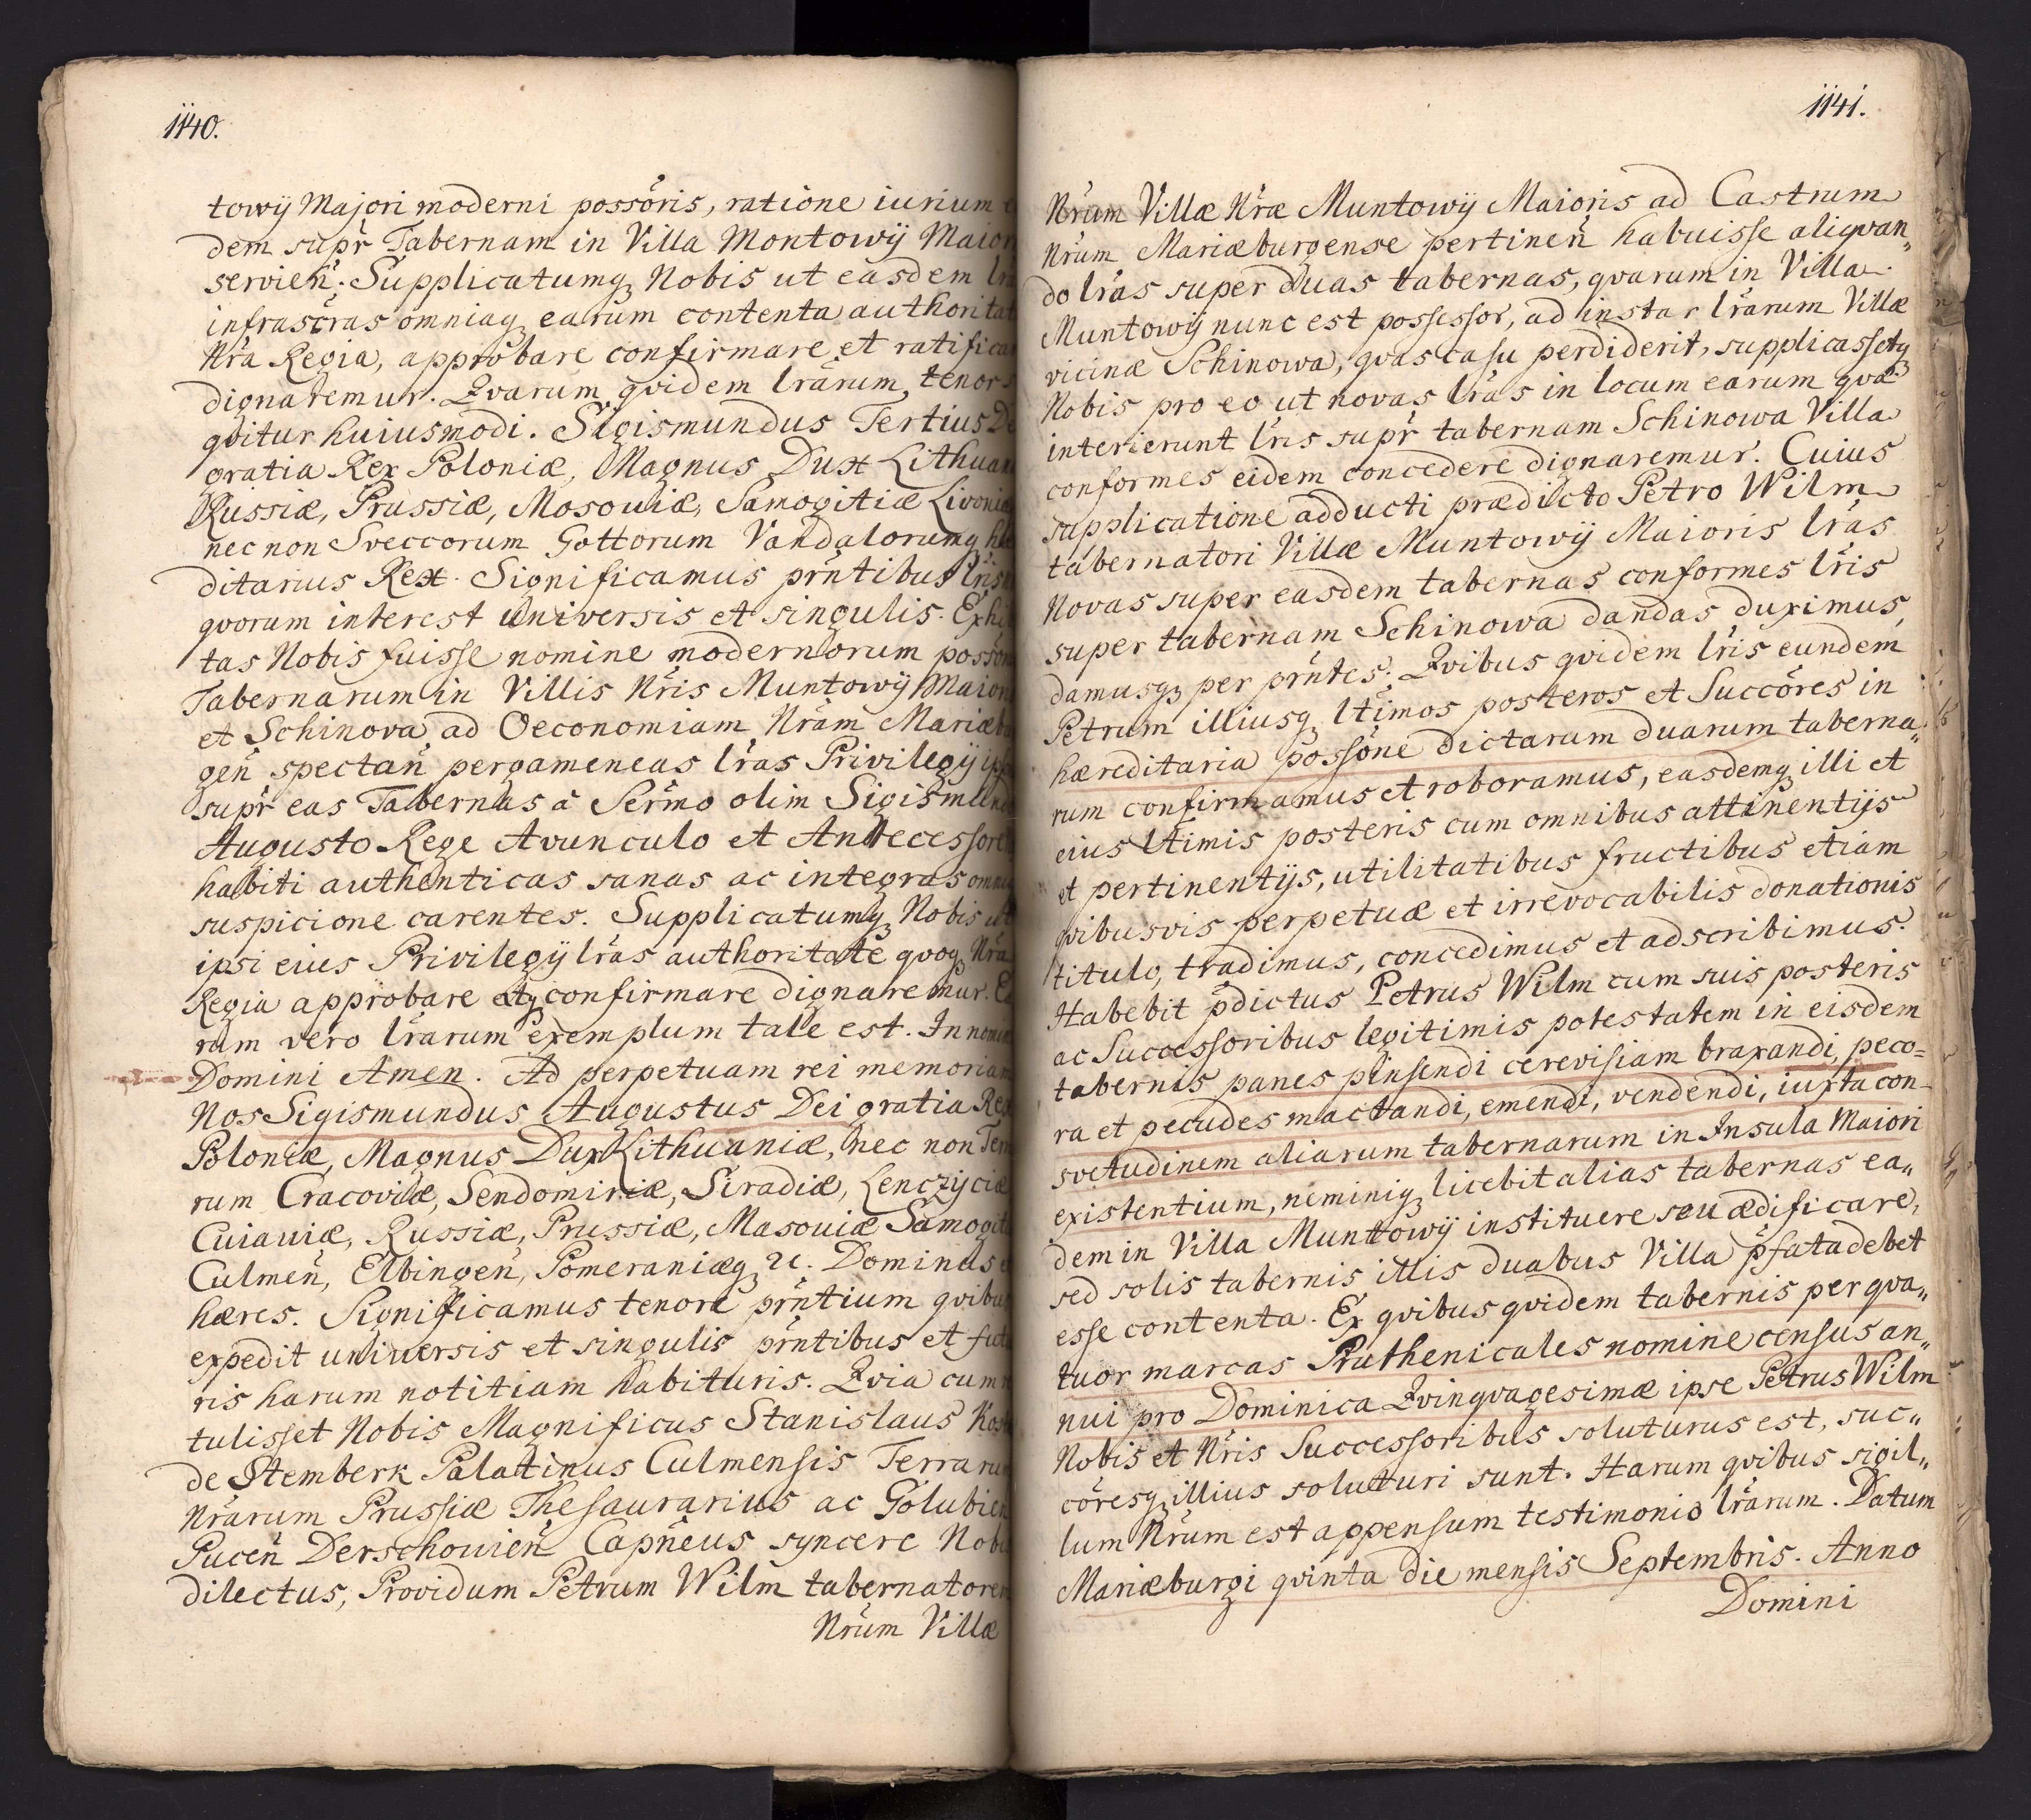 1140.
towÿ Majori moderni possoris, ratione iurium
dem supr Tabernam in Villa Montowÿ Maior
servien̄. Supplicatumq₃ Nobis ut easdem lrā
infrascras omniaq₃ earum contenta authoritat
Nrā Regia, approbare confirmare et ratificar
dignaremur. Qvarum qvidem lrārum tenor s
qvitur huiusmodi. Sigismundus Tertius De
gratia Rex Poloniæ, Magnus Dux Lithuan
Russiæ, Prussiæ, Mosouiæ, Samogitiæ Livoniæ
nec non Sveccorum Gottorum Vandalorumq₃ hæ
ditarius Rex. Significamus prn̄tibus lrīs
qvorum interest universis et singulis. Exhi
tas Nobis fuisse nomine modernorum possōr
Tabernarum in Villis Nrīs Muntowÿ Maior
et Schinova ad Oeconomiam Nrām Mariæb
gen̄ spectan̄ pergameneas lrās Privilegÿ ip
supr eas Tabernas a Serm̄o olim Sigismund
Augusto Rege Avunculo et Antecessore
habiti authenticas sanas ac integras omni
suspicione carentes. Supplicatumq₃ Nobis ut
ipsi eius Privilegÿ lrās authoritate qvoq₃ Nrā
Regia approbare etq₃ confirmare dignaremur. E
rum vero lrārum exemplum tale est. In nomin
Domini Amen. Ad perpetuam rei memoriam
Nos Sigismundus Augustus Dei gratia Rex
Poloniæ, Magnus Dux Lithuaniæ, nec non Ter
rum Cracoviæ, Sendomiriæ, Siradiæ, Lenczÿciæ
Cuiauiæ, Russiæ, Prussiæ, Masouiæ Samogit
Culmen̄, Elbingen̄, Pomeraniæq₃ 2c. Dominus e
hæres. Significamus tenore prn̄tium qvibus
expedit universis et singulis prn̄tibus et futu
ris harum notitiam habituris. Qvia cum
tulisset Nobis Magnificus Stanislaus Kost
de Stemberk Palatinus Culmensis Terrarum
Nrārum Prussiæ Thesaurarius ac Golubien
Pucen̄ Derschouien̄ Capn̄eus syncere Nobi
dilectus, Providum Petrum Wilm tabernatorem
Nrūm Villæ
1141.
Nrūm Villæ Nræ Muntowÿ Maioris ad Castrum
Nrūm Mariæburgense pertinen̄ habuisse aliqvan„
do lrās super duas tabernas, qvarum in Villa
Muntowÿ nunc est possessor, ad instar lrārum Villæ
vicinæ Schinowa, qvas casu perdiderit, supplicassetq₃
Nobis pro eo ut novas lrās in locum earum qvæ
interierunt lrīs supr tabernam Schinowa Villa
conformes eidem concedere dignaremur. Cuius
supplicatione adducti prædicto Petro Wilm
tabernatori Villæ Muntowÿ Maioris lrās
Novas super easdem tabernas conformes lrīs
super tabernam Schinowa dandas duximus,
damusq₃ per prn̄tes. Qvibus qvidem lrīs eundem
Petrum illiusq₃ ltīmos posteros et Succōres in
hæreditaria possōne dictarum duarum taberna„
rum confirmamus et roboramus, easdemq₃ illi et
eius ltīmis posteris cum omnibus attinentÿs
et pertinentÿs, utilitatibus fructibus etiam
qvibusvis perpetuæ et irrevocabilis donationis
titulo, tradimus, concedimus et adscribimus.
Habebit p̄dictus Petrus Wilm cum suis posteris
ac Successoribus legitimis potestatem in eisdem
tabernis panes pinsendi cerevisiam braxandi, peco=
ra et pecudes mactandi, emendi, vendendi, iuxta con-
svetudinem aliarum tabernarum in Insula Maiori
existentium, neminiq₃ licebit alias tabernas ea„
dem in Villa Muntowÿ instituere seu ædificare,
sed solis tabernis illis duabus Villa p̄fata debet
esse contenta. Ex qvibus qvidem tabernis per qva„
tuor marcas Pruthenicales nomine census an„
nui pro Dominica Qvinqvagesimæ ipse Petrus Wilm
Nobis et Nrīs Successoribus soluturus est, suc„
cōresq₃ illius soluturi sunt. Harum qvibus sigil„
lum Nrūm est appensum testimonio lrārum. Datum
Mariæburgi qvinta die mensis Septembris. Anno
Domini